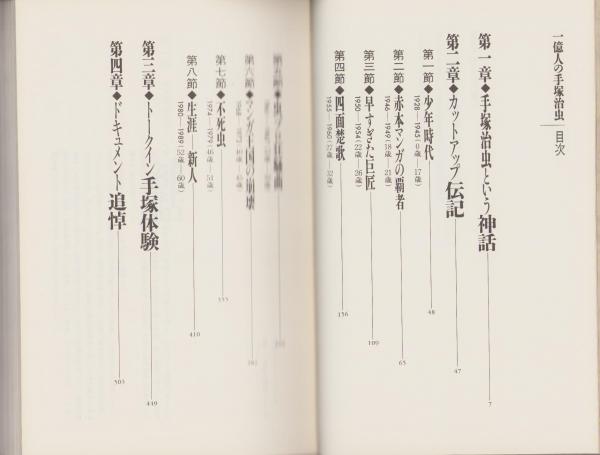 一億人の手塚治虫 目次
第一章◆手塚治虫という神話 7
第二章◆カットアップ伝記 47
第一節◆少年時代 48
1928―1945(0歳 17歳)
第二節◆赤本マンガの覇者 65
1946―1949(18歳 21歳)
第三節◆早すぎた巨匠 109
1950―1954(22歳 26歳)
第四節◆四面楚歌 156
1955―1960(27歳 32歳)
第六節◆マンガ王国の崩壊
第七節◆不死虫 335
1974―1979(46歳 51歳)
第八節◆生涯―新人 410
1980―1989(52歳 60歳)
第三章◆トークイン手塚体験 449
第四章◆ドキュメント追悼 505